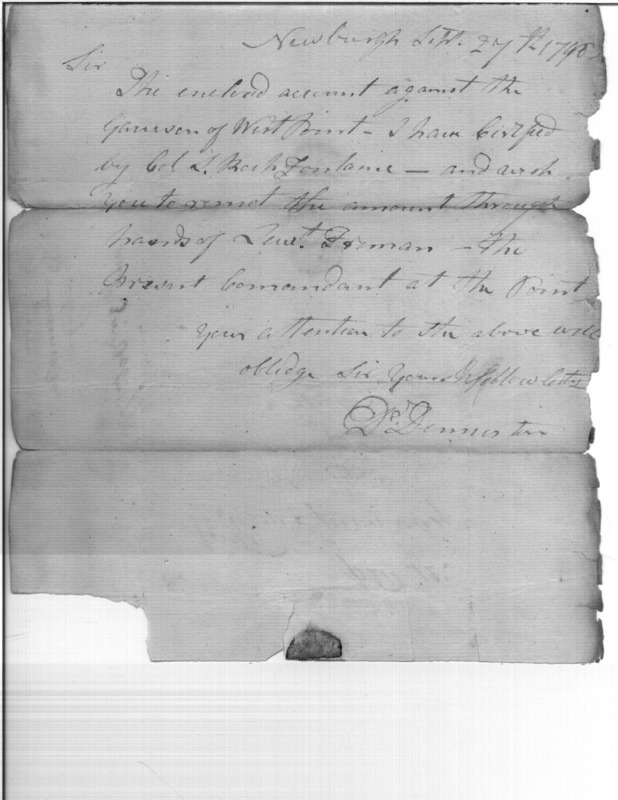 Newburgh Sept. 27th 1798
Sir
The enclosed account against the
Garrison of West Point - I have
by Col. Roch Fontaine - and wish
you to remit the amount through
hands of Lieut. - the
Present Comandant at the Point
Your attention to the above will
oblidge Sir Yours &
Dr. Denniston